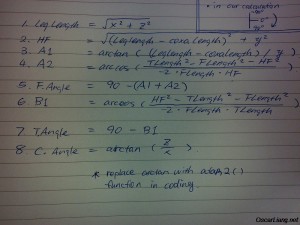 * in our calculation
1. LegLength = √(x² + z²)
2. HF = √((LegLength - coxaLength)² + y²)
3. A1 = arctan ((LegLength - coxaLength) / y)
4. A2 = arccos (TLength² - FLength² - HF² / -2 · FLength · HF)
5. F.Angle = 90 - (A1 + A2)
6. B1 = arccos (HF² - TLength² - FLength² / -2 · FLength · TLength)
7. T.Angle = 90 - B1
8. C.Angle = arctan (z / x)
* replace arctan with atan2()
function in coding.
OscarLiang.net